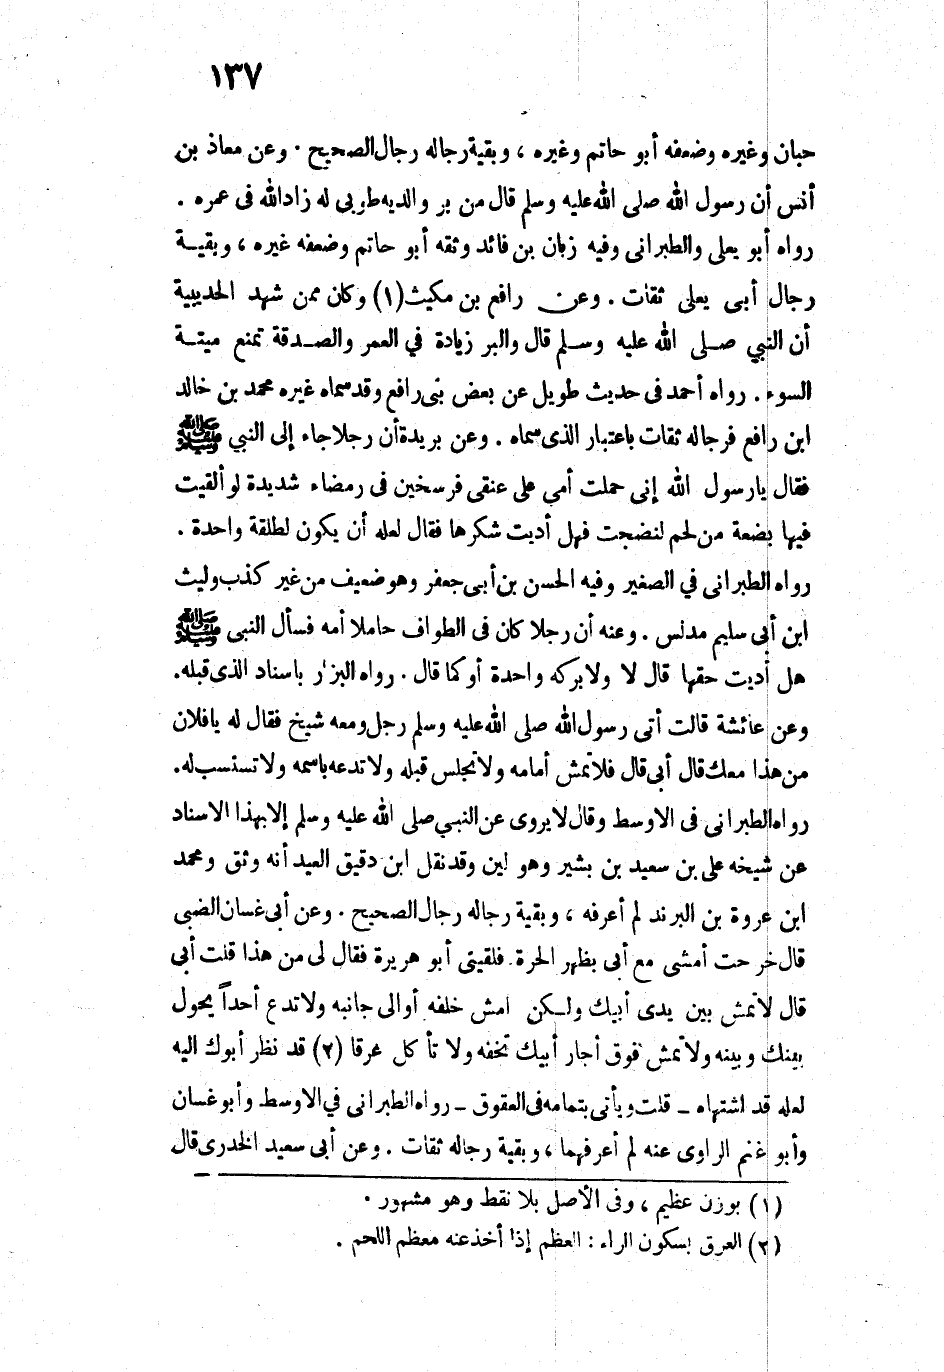 ١٣٧
حبان وغيره وضعفه أبو حاتم وغيره ، وبقية رجاله رجال الصحيح . وعن معاذ بن
أنس أن رسول الله صلى الله عليه وسلم قال من بر والديه طوبى له زاد الله فى عمره .
رواه أبو يعلى والطبرانى وفيه زبان بن فائد وثقه أبو حاتم وضعفه غيره ، وبقيـة
رجال أبى يعلى ثقات . وعن رافع بن مكيث (١) وكان ممن شهد الحديبية
أن النبي صلى الله عليه وسلم قال والبر زيادة في العمر والصدقة تمنع ميتة
السوء . رواه أحمد فى حديث طويل عن بعض بنى رافع وقد سماه غيره محمد بن خالد
ابن رافع فرجاله ثقات باعتبار الذى سماه . وعن بريدة أن رجلا جاء إلى النبي ﷺ
فقال يارسول الله إنى حملت أمي على عنقى فرسخين فى رمضاء شديدة لو ألقيت
فيها بضعة من لحم لنضجت فهل أديت شكرها فقال لعله أن يكون لطلقة واحدة .
رواه الطبرانى في الصغير وفيه الحسن بن أبى جعفر وهو ضعيف من غير كذب وليث
ابن أبى سليم مدلس . وعنه أن رجلا كان فى الطواف حاملا أمه فسأل النبى ﷺ
هل أديت حقها قال لا ولا بركه واحدة أو كما قال . رواه البزار باسناد الذى قبله .
وعن عائشة قالت أتى رسول الله صلى الله عليه وسلم رجل ومعه شيخ فقال له يافلان
من هذا معك قال أبى قال فلا تمش أمامه ولا تجلس قبله ولا تدعه باسمه ولا تستسب له .
رواه الطبرانى فى الاوسط وقال لا يروى عن النبي صلى الله عليه وسلم إلا بهذا الاسناد
عن شيخه على بن سعيد بن بشير وهو لين وقد نقل ابن دقيق العيد أنه وثق ومحمد
ابن عروة بن البرند لم أعرفه ، وبقية رجاله رجال الصحيح . وعن أبى غسان الضبى
قال خرجت أمشى مع أبى بظهر الحرة فلقينى أبو هريرة فقال لى من هذا قلت أبى
قال لا تمش بين يدى أبيك ولكن امش خلفه أو الى جانبه ولا تدع أحداً يحول
بينك وبينه ولا تمش فوق أجار أبيك تخفه ولا تأكل عرقا (٢) قد نظر أبوك اليه
لعله قد اشتهاه - قلت ويأتى بتمامه فى العقوق - رواه الطبرانى في الاوسط وأبو غسان
وأبو غنم الراوى عنه لم أعرفهما ، وبقية رجاله ثقات . وعن أبى سعيد الخدرى قال
(١) بوزن عظيم ، وفى الأصل بلا نقط وهو مشهور .
(٢) العرق بسكون الراء : العظم إذا أخذ عنه معظم اللحم .